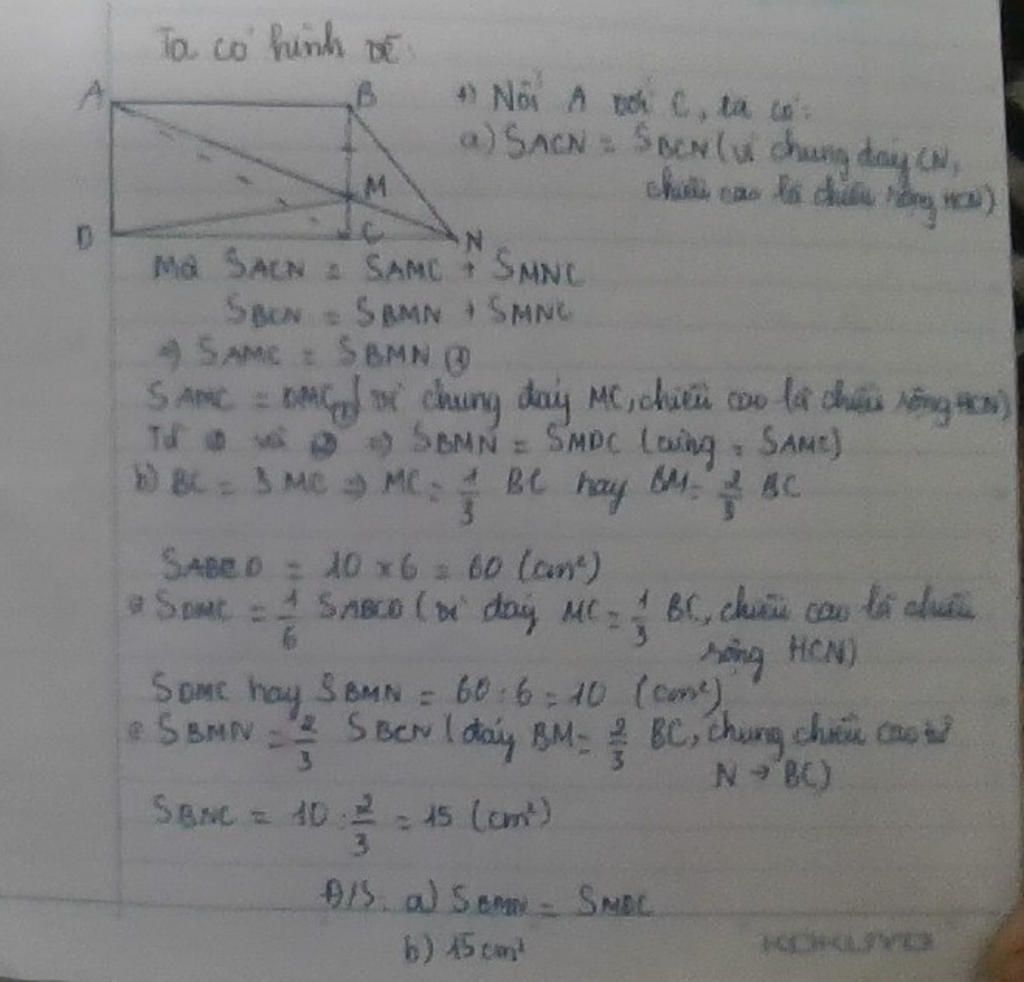 Ta có hình vẽ:
A
B
M
D
C
N
+) Nối A với C, ta có:
a) SACN = SBCN (vì chung đáy CN,
chiều cao là chiều rộng HCN)
Mà SACN = SAMC + SMNC
SBCN = SBMN + SMNC
⇒ SAMC = SBMN ①
SAMC = DMC② (vì chung đáy MC, chiều cao là chiều rộng HCN)
Từ ① và ② ⇒ SBMN = SMDC (cùng = SAMC)
b) BC = 3 MC ⇒ MC = 1/3 BC hay BM = 2/3 BC
SABCD = 10 × 6 = 60 (cm²)
SDMC = 1/6 SABCD (vì đáy MC = 1/3 BC, chiều cao là chiều
rộng HCN)
SDMC hay SBMN = 60 : 6 = 10 (cm²)
SBMN = 2/3 SBCN (đáy BM = 2/3 BC, chung chiều cao từ
N → BC)
SBNC = 10 : 2/3 = 15 (cm²)
Đ/S: a) SBMN = SMDC
b) 15 cm²
KOKUYO